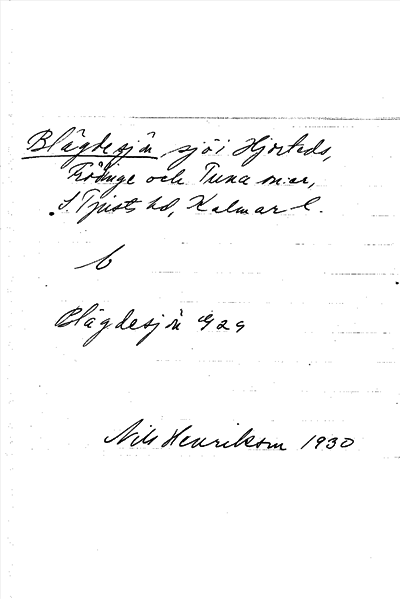 Blågdesjön, sjö i Hjorteds,
Frödinge och Tuna snar,
S. Tjusts hd, Kalmar l.
b
Blågdesjön G 29
Nils Henrikson 1930